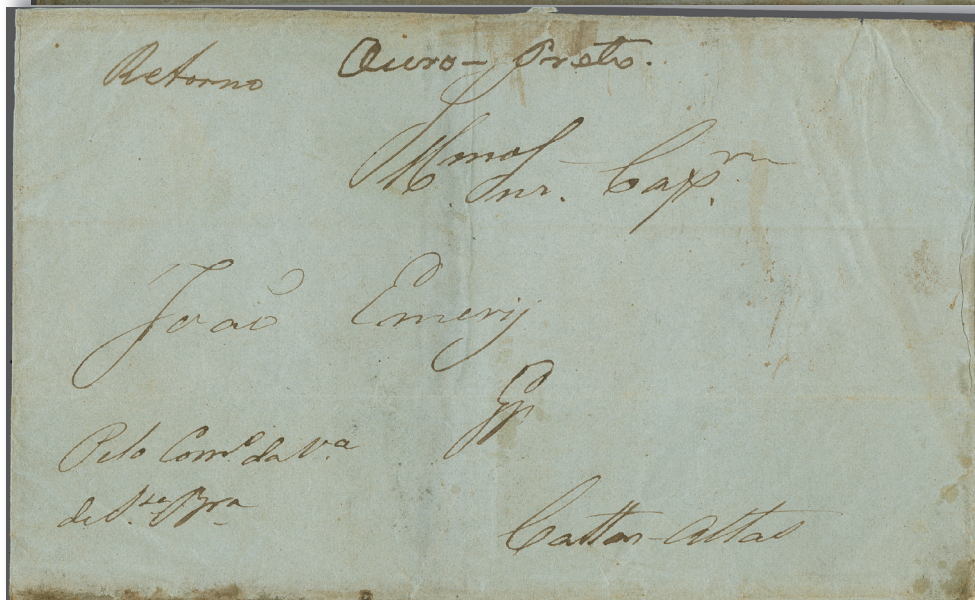 Retorno Ouro-Preto.
Illmo Snr. Capm
João Emery
Pelo Corro. da Va
de Sta Bra
Cattas-Altas